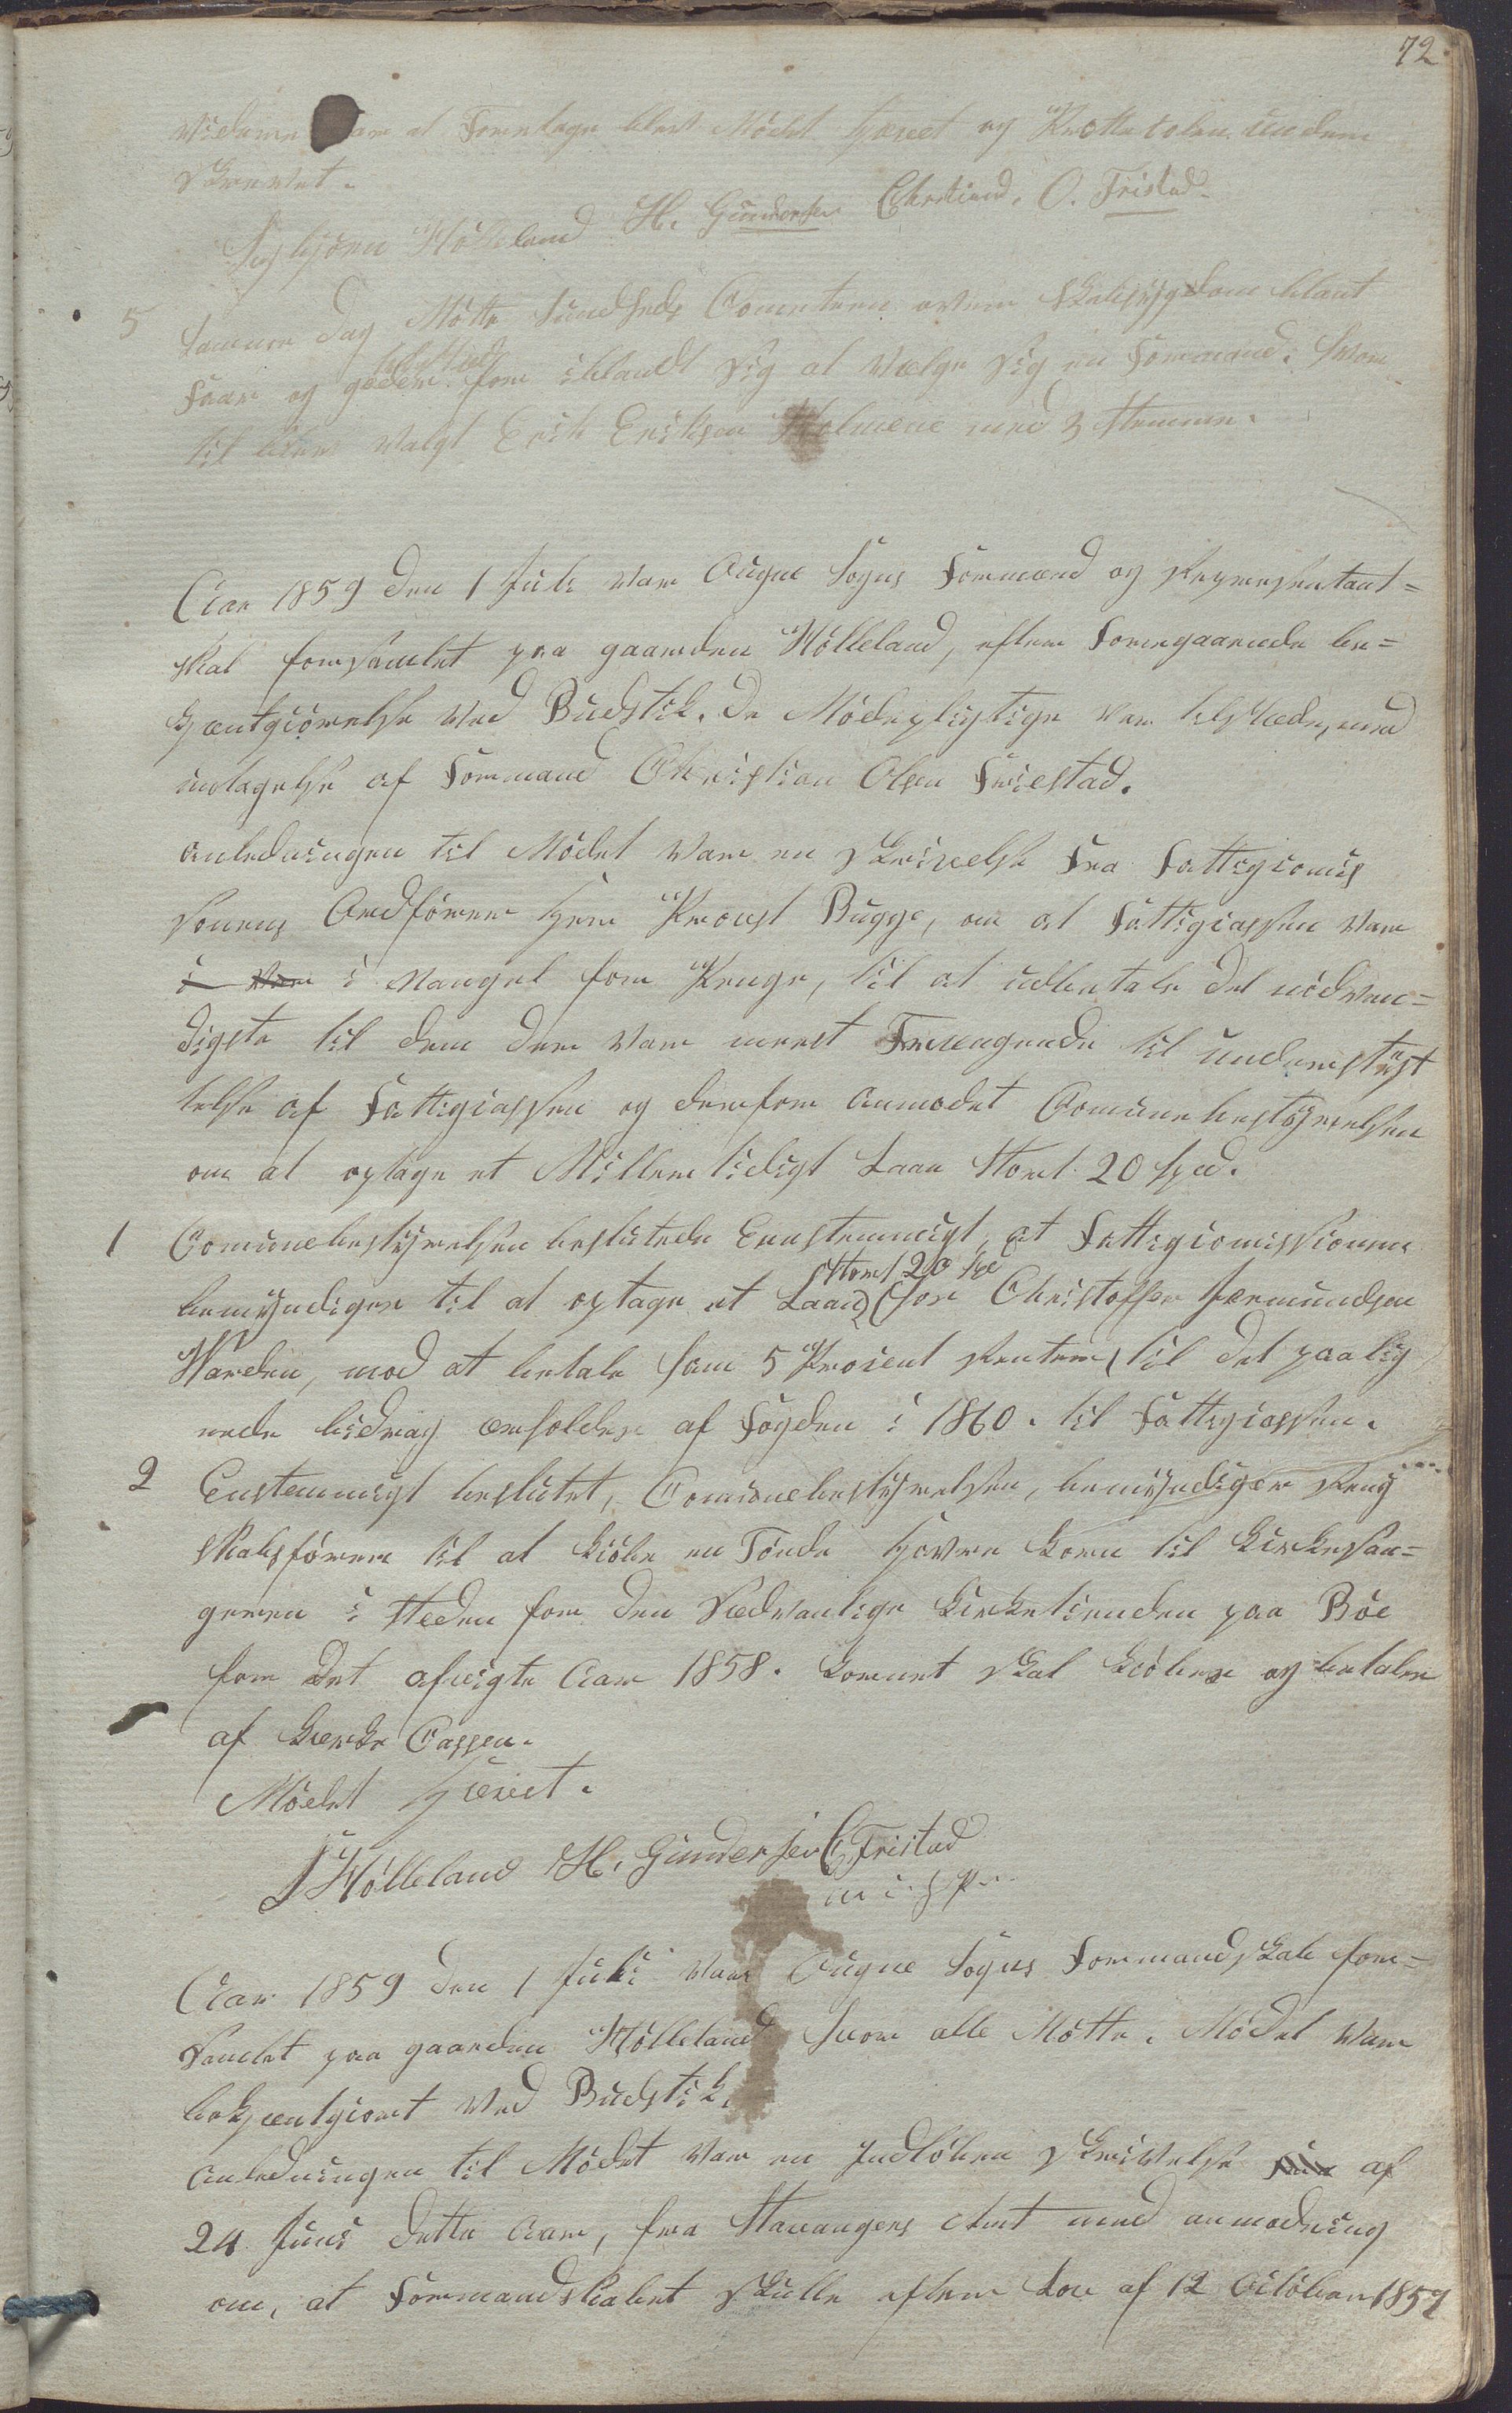 72
Videre var at Foretage blev Mødet hævet og Prottocolen under
skrevet.
Sigbjørn Hölleland H. Gunderse Christiend. O. Fristad
5 Samme Dag Møtte Sundheds Comiteen over Skabsygdom blant
Faar og geder for iblandt sig at Vælge sig en Formand. Hvor
til blev Valgt Erik Eriksen Holmene med 3 stemmer.
Aar 1859 den 1 Juli var Ougne Sogns Formænd og Repræsentant-
skab forsamlet paa gaarden Hölleland, efter Foregaaende be-
kjæntgiörelse ved Budstik. De Mödepligtige var tilstæde, med
intagelse af Formand Christian Olsen Friestad.
Anledningen til Mödet var en Skrivelse fra Fattigcomis
sionens Ordförer Herr Proust Bugge, om at Fattigcassen var
i var i Mangel for Penge, til at udbetale det nödven-
digste til dem der var meest Trængende til understøt
telse af Fattigcassen og derfor anmodet Comunebestÿrelsen
om at optage et Millertidigt Laan Stort 20 Spd.
1 Comunebestÿrelsen beslutede Eenstemmigt, at Fattigcomissionen
Stort 20 Spd
bemÿndiges til at optage et Laan hos Christoffer Sæmundsen
Warden, mod at betale ham 5 Procent Renter, til det paalig
nede bidrag erholdes af Fogden i 1860. til Fattigcassen.
2 Enstemmigt beslutet, Comunebestÿrelsen, bemÿndiger Reng
skabsförer til at kiöbe en Tönde Havre korn til Kirkesan-
geren i Steden for den Sædvanlige Kirketienden paa Böe
for det afvigte Aar 1858. Kornet skal kiöbes og betales
af Kierke Cassen.
Mödet hævet.
S Hölleland H. Gundersen C Fristad
Aar 1859 den 1 Juli var Ougne Sogns Formandskab for-
samlet paa gaarden Hölleland hvor alle Møtte. Mødet var
bekjæntgiort ved Budstik.
Anledningen til Mødet var en Indløben Skrivelse af
24 Juni dette Aar, fra Stavangers Amt med anmodning
om, at Formandskabet skulle efter Lov af 12 October 1857